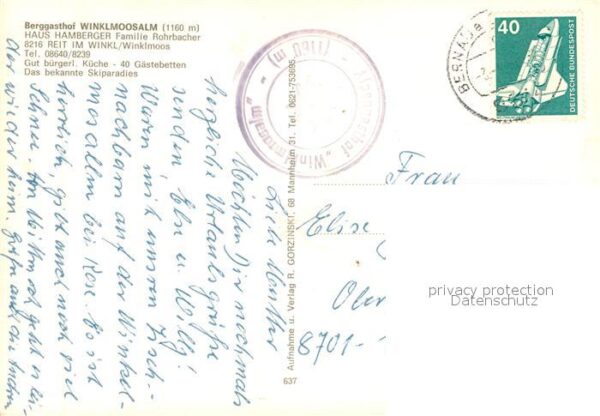 Berggasthof WINKLMOOSALM (1160 m)
HAUS HAMBERGER Familie Rohrbacher
8216 REIT IM WINKL/Winklmoos
Tel. 08640/8239
Gut bürgerl. Küche - 40 Gästebetten
Das bekannte Skiparadies
Liebe Mutter
Möchten Dir nochmals
herzliche Urlaubsgrüße
senden Elsa u. Willy
Waren mit unseren Tisch-
nachbarn auf der Winkel-
moosalm bei Kose. Es ist
herrlich, gibt auch noch viel
Schnee. Am Mittwoch geht es lei-
der wieder heim. Grüße auch die Andern
Alpengasthof "Winklmoosalm" - (1160 m) -
Aufnahme u. Verlag R. GORZINSKI, 68 Mannheim 31, Tel. 0621-753695
637
BERNAU a
40
DEUTSCHE BUNDESPOST
Frau
Elise
Ober
8701-
privacy protection
Datenschutz